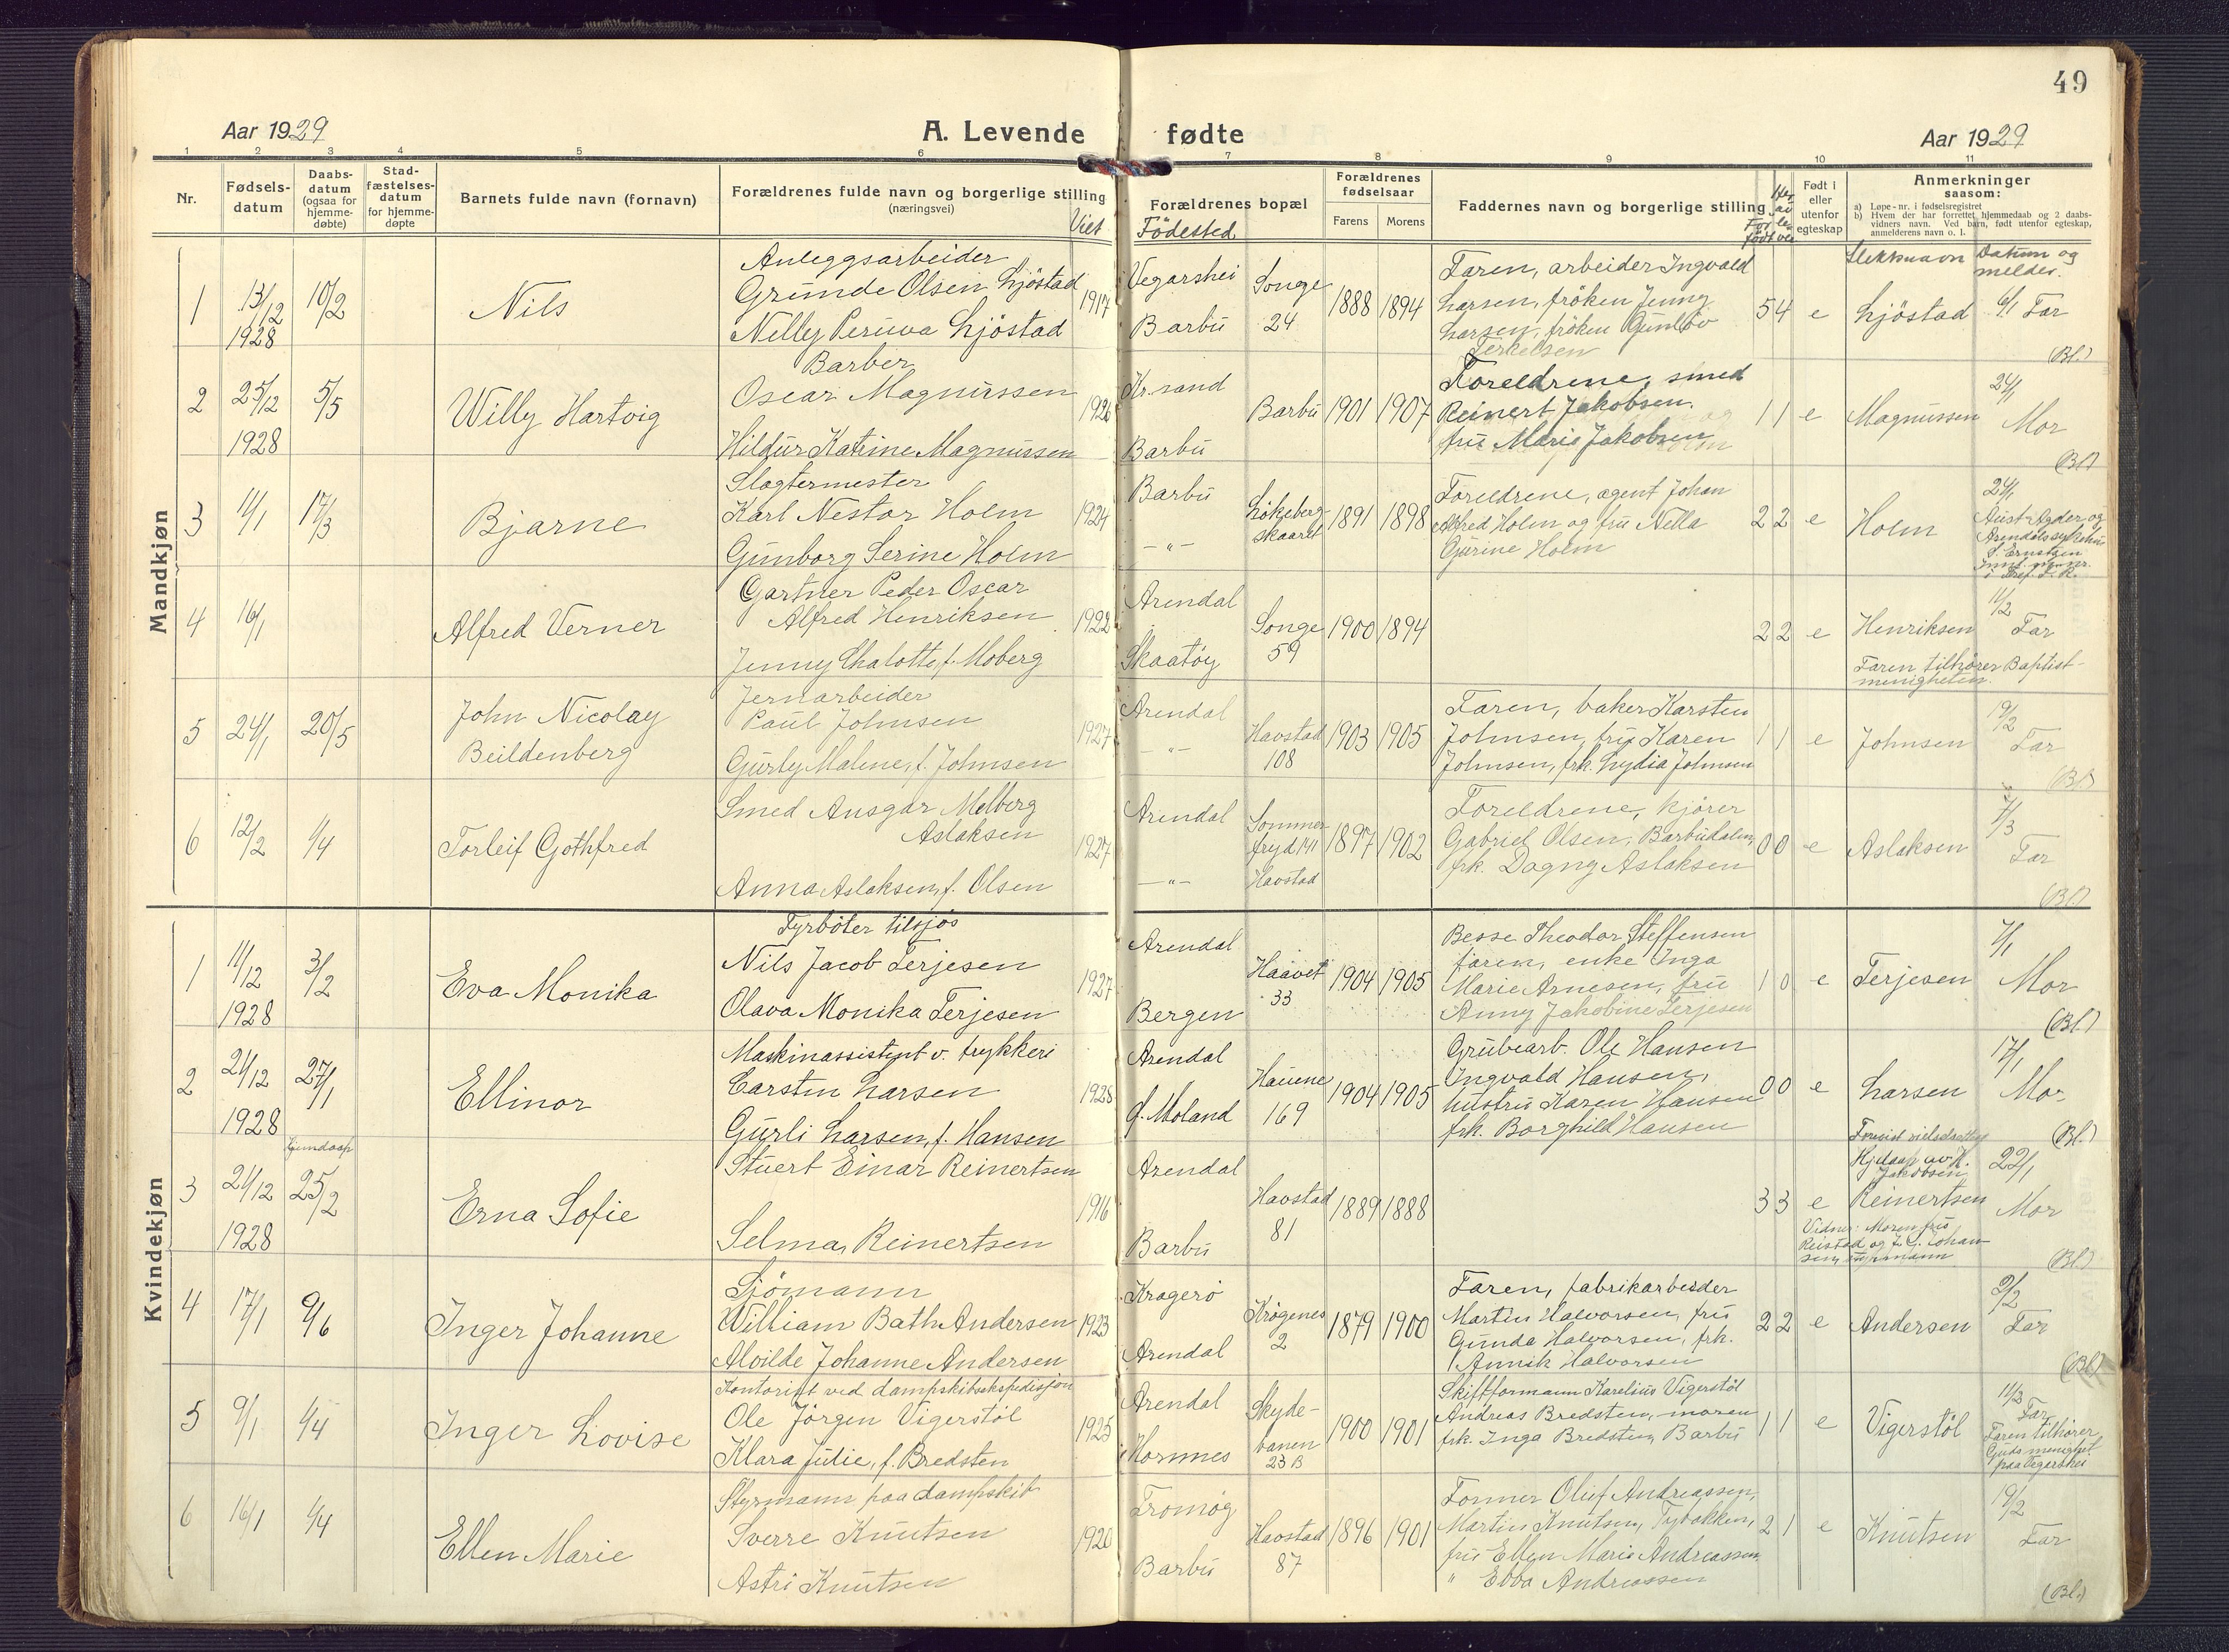 49
Aar 1929
A. Levende fødte
Aar 1929
1 2 3 4 5 6 7 8 9 10 11
Nr.
Fødsels-
datum
Daabs-
datum
(ogsaa for
hjemme-
døbte)
Stad-
fæstelses-
datum
for hjemme-
døpte
Barnets fulde navn (fornavn)
Forældrenes fulde navn og borgerlige stilling
(næringsvei)
Viet
Forældrenes bopæl
Födested
Forældrenes
fødselsaar
Farens Morens
Faddernes navn og borgerlige stilling
Født i
eller
utenfor
egteskap
Anmerkninger
saasom:
a) Løpe-nr. i fødselsregistret
b) Hvem der har forrettet hjemmedaab og 2 daabs-
vidners navn. Ved barn, født utenfor egteskap,
anmelderens navn o. l.
Slektsnavn Datum og
melder.
Mandkjøn
1 13/12 1928 10/2
Nils
Anleggsarbeider
Grunde Olsen Ljöstad
Nelly Peruva Ljöstad
1917
Vegarshei
Barbu
Songe
24
1888 1894
Faren, arbeider Ingvald
Larsen, fröken Jenny
Larsen, fröken Gunlöv
Terkelsen
5 4 e Ljöstad 6/1 Far
(Bl.)
2 25/12 1928 5/5
Willy Hartvig
Barber
Oscar Magnussen
Hildur Katrine Magnussen
1926
Kr.sand
Barbu
Barbu
1901 1907
Foreldrene, smed
Reinert Jakobsen.
fru Marie Jakobsen
1 1 e Magnussen 24/1
Mor
(Bl)
3 11/1 17/3
Bjarne
Slagtermester
Karl Nestor Holm
Gunborg Serine Holm
1924
Barbu
— " —
Lökeberg
skaaret
1891 1898
Foreldrene, agent Johan
Alfred Holm og fru Nella
Gurine Holm
2 2 e Holm 24/1
Aust-Agder og
Arendals sykehus
4 16/1
Alfred Verner
Gartner Peder Oscar
Alfred Henriksen
Jenny Chalotte f. Moberg
1922
Arendal
Skaatöy
Songe
59
1900 1894
2 2 e Henriksen 11/2
Far
Faren tilhörer Baptist-
menigheten.
5 24/1 20/5
John Nicolay
Beildenberg
Jernarbeider
Paul Johnsen
Gurly Malene, f. Johnsen
1927
Arendal
— " —
Havstad
108
1903 1905
Faren, baker Karsten
Johnsen, fru Karen
Johnsen, frk. Lydia Johnsen
1 1 e Johnsen 19/2
Far
(Bl)
6 12/2 1/4
Torleif Gothfred
Smed Ansgar Melberg
Aslaksen
Anna Aslaksen, f. Olsen
1927
Arendal
— " —
Sommer
fryd 141
Havstad
1897 1902
Foreldrene, kjörer
Gabriel Olsen, Barbudalen,
frk. Dagny Aslaksen
0 0 e Aslaksen 7/3
Far
(Bl)
Kvindekjøn
1 11/12 1928 3/2
Eva Monika
Fyrböter tilsjös
Nils Jacob Terjesen
Olava Monika Terjesen
1927
Arendal
Bergen
Haavet
33
1904 1905
Besse Theodor Steffensen
faren, enke Inga
Marie Arnesen, fru
Anny Jakobine Terjesen
1 0 e Terjesen 7/1
Mor
(Bl.)
2 21/12 1928 27/1
Ellinor
Maskinassistent v. trykkeri
Carsten Larsen
Gurli Larsen, f. Hansen
1928
Arendal
Ö. Moland
Hauene
169
1904 1905
Grubearb. Ole Hansen
Ingvald Hansen,
hustru Karen Hansen
frk. Borghild Hansen
0 0 e Larsen 17/1
Mor
(Bl.)
3 21/12 1928 Hjemdaap 25/2
Erna Sofie
Stuert Einar Reinertsen
Selma Reinertsen
1916
Arendal
Barbu
Havstad
81
1889 1888
3 3 e
Hjdaap av K.
Jakobsen
Reinertsen 22/1
Mor
Vidner: Moren, fru
(Bl)
4 17/1 9/6
Inger Johanne
Sjömann
William Bath Andersen
Alvilde Johanne Andersen
1923
Kragerö
Arendal
Krögenes
2
1879 1900
Faren, fabrikarbeider
Martin Halvorsen, fru
Gunda Halvorsen, frk.
Annik Halvorsen
2 2 e Andersen 9/2
Far
(Bl)
5 9/1 1/4
Inger Lovise
Kontorist ved dampskibsekspedisjon
Ole Jörgen Vigerstöl
Klara Julie, f. Bredsten
1925
Arendal
Hornnes
Skyde-
banen
23 B
1900 1901
Skiftformann Karelius Vigerstöl
Andreas Bredsten, moren
frk. Inga Bredsten, Barbu
1 1 e Vigerstöl 11/3
Far
Faren tilhörer
Guds menighet
paa Vegarshei
6 16/1 1/4
Ellen Marie
Styrmann paa dampskib
Sverre Knutsen
Astri Knutsen
1920
Tromöy
Barbu
Havstad
87
1896 1901
Former Oluf Andreassen,
Martin Knutsen, Tybakken,
fru Ellen Marie Andreassen
" Ebba Andreassen
2 1 e Knutsen 19/2
Far
(Bl.)